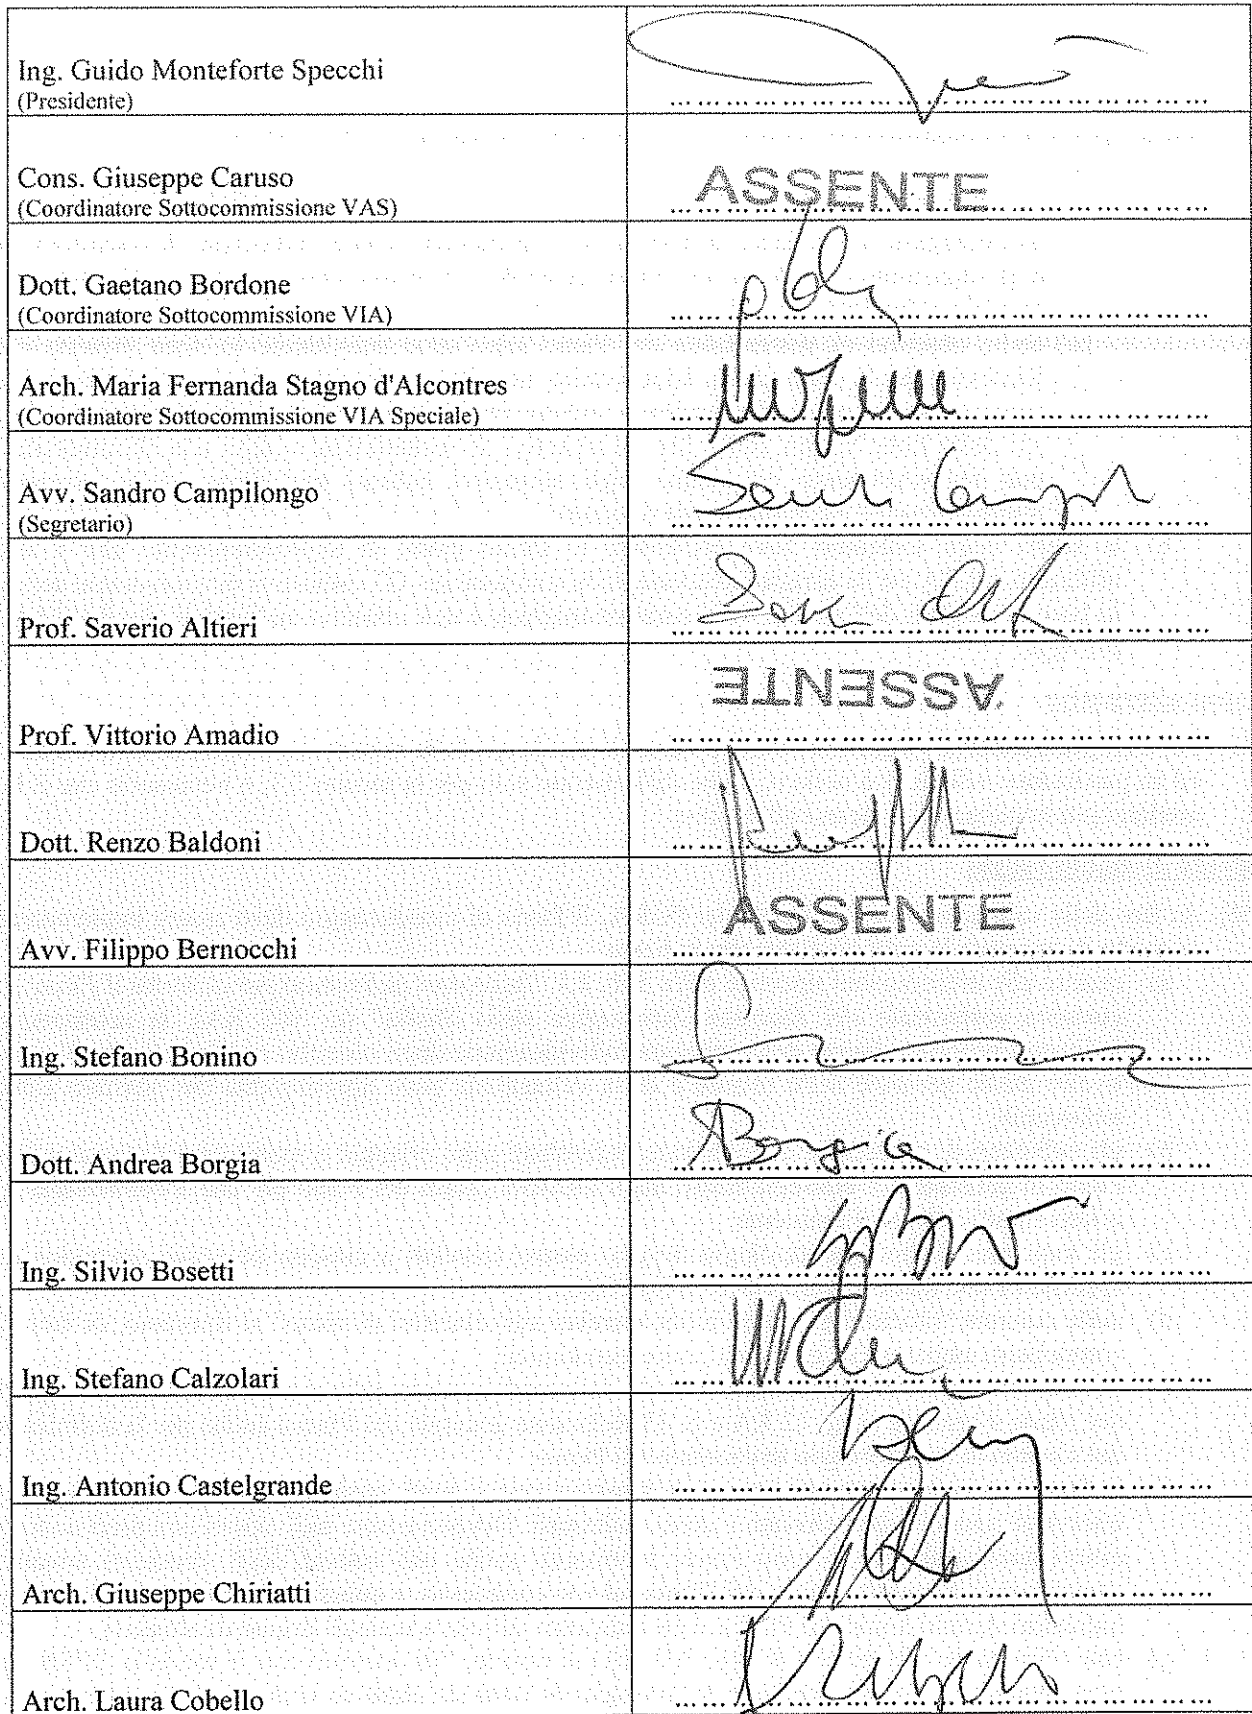 Ing. Guido Monteforte Specchi
(Presidente)
Cons. Giuseppe Caruso
(Coordinatore Sottocommissione VAS)
ASSENTE
Dott. Gaetano Bordone
(Coordinatore Sottocommissione VIA)
Arch. Maria Fernanda Stagno d'Alcontres
(Coordinatore Sottocommissione VIA Speciale)
Avv. Sandro Campilongo
(Segretario)
Prof. Saverio Altieri
Prof. Vittorio Amadio
ASSENTE
Dott. Renzo Baldoni
Avv. Filippo Bernocchi
ASSENTE
Ing. Stefano Bonino
Dott. Andrea Borgia
Borgia
Ing. Silvio Bosetti
Ing. Stefano Calzolari
Ing. Antonio Castelgrande
Arch. Giuseppe Chiriatti
Arch. Laura Cobello